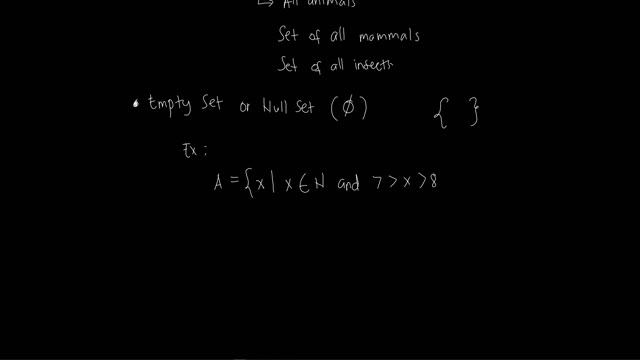 ↳ All animals
Set of all mammals
Set of all insects
• Empty Set or Null Set (∅) { }
Ex:
A = {x | x ∈ N and 7 > x > 8